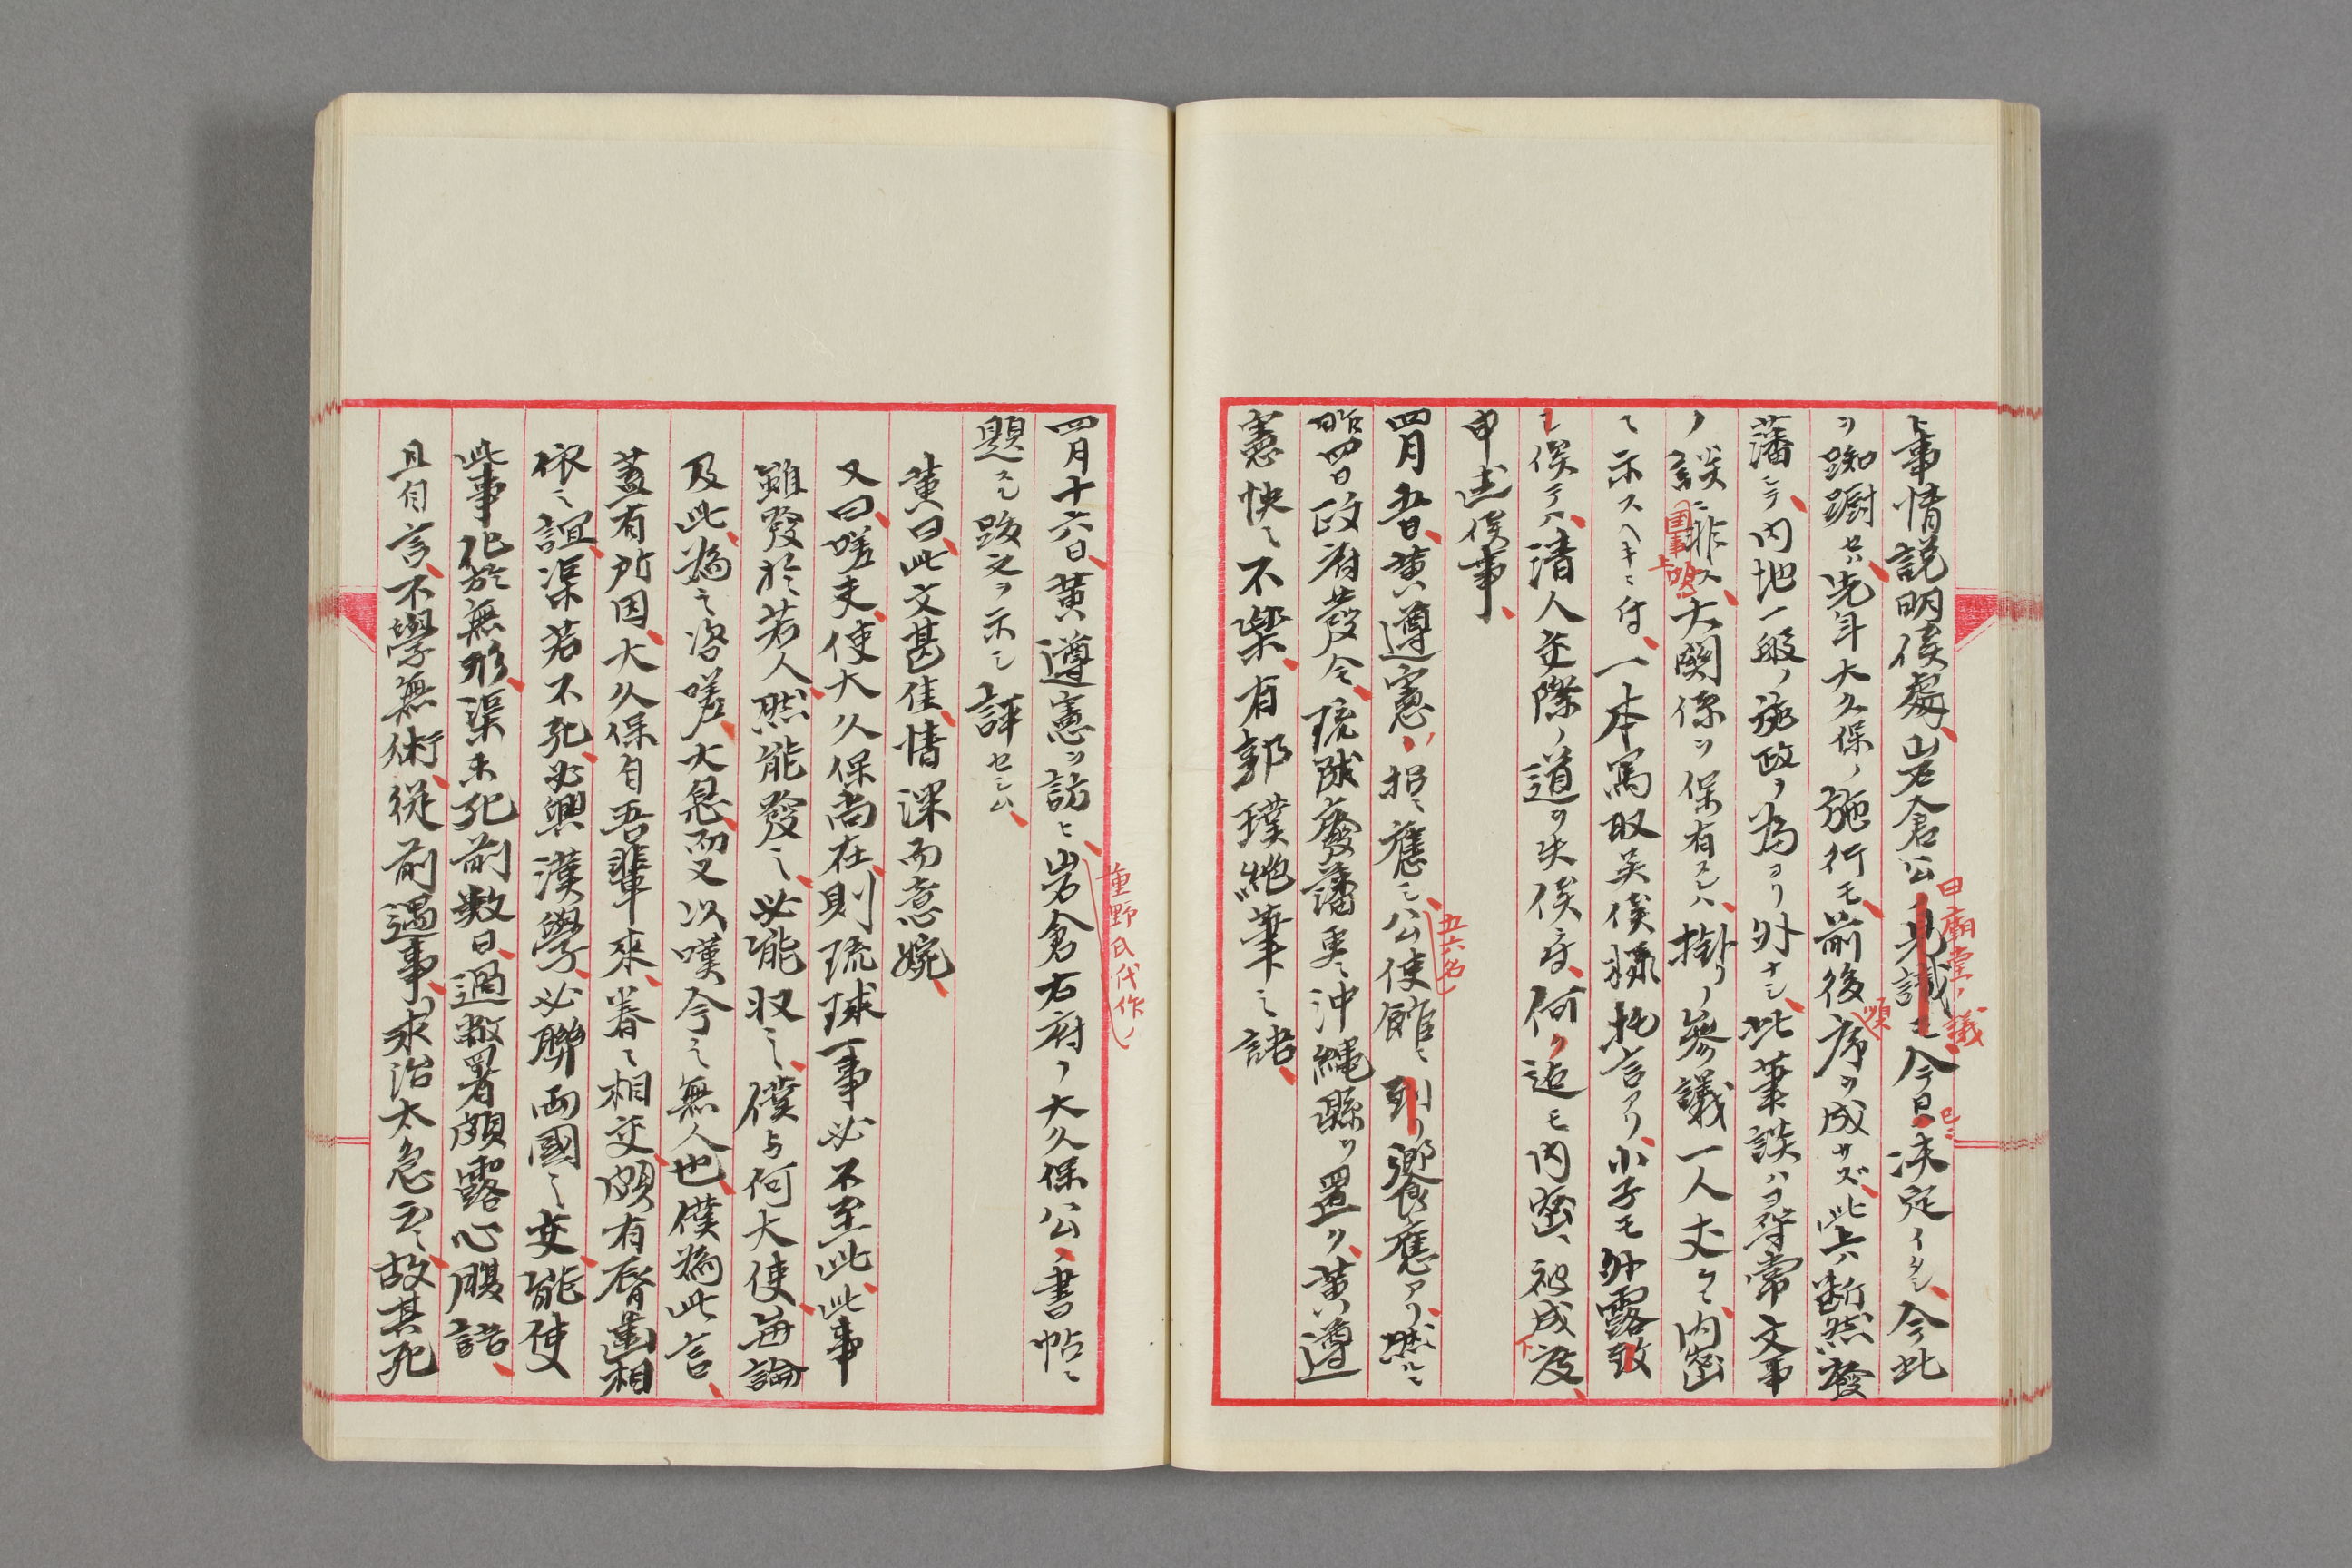 ト事情説明候處、山岩倉公ノ見識モ今日決定イタシ、今此
曰廟堂ノ議
已ニ
ヲ踟蹰セハ、先年大久保ノ施行モ、前後序ヲ成サズ、此上ハ断然發
順
藩シテ、内地一般ノ施政ヲ為ヨリ外ナシ、此筆談ハ尋常文事
ノ談ニ非ス、大関係ヲ保有スレハ、掛リノ參議一人丈ケヘ内密
国事上
ヘ示スヘキニ付、一本寫取呉候様托言アリ、小子モ外露致
シ候テハ、清人交際ノ道ヲ失候故、何ノ迄モ内密ニ被成度、
下
申述候事、
四月五日、黄遵憲ノ招ニ應シ、公使館ニ到リ饗應アリ、然ルニ
五六名ノ
昨四日政府發令、琉球廢藩更ニ沖縄縣ヲ置ク、黄遵
憲怏々不樂、有郭璞絶筆之語、
四月十六日、黄遵憲ヲ訪ヒ、岩倉右府ノ大久保公ノ書帖ニ
重野氏代作ノ
題スル跋文ヲ示シ評セシム、
黄曰、此文甚佳、情深而意婉、
又曰、嗟夫、使大久保尚在、則琉球一事必不至此、此事
雖發於若人、然能發之、必能収之、僕与何大使、毎論
及此、為之咨嗟、大息、而又以嘆今之無人也、僕為此言、
蓋有所因、大久保自吾輩来、眷々相交、頗有脣齒相
依之誼、渠若不死、必興漢學、必聯両國之交、能使
此事化於無形、渠未死前数日、過敝署、頗露心腹語、
且自言、不學無術、從前遇事、求治太急云々、故其死